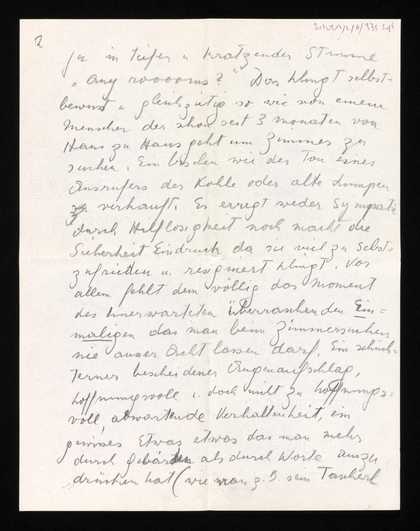 2
ja in tiefer u kratzender Stimme
„any rooooms?" Das klingt selbst-
bewusst u gleichzeitig so wie von einem
Menschen der schon seit 3 monaten von
Haus zu Haus geht um Zimmer zu
suchen. Ein bischen wie der Ton eines
Ausrufers der Kohle oder alte Lumpen
verkauft. Es erregt weder Sympathie
durch Hilflosigkeit noch macht die
Sicherheit Eindruck da sie viel zu selbst-
zufrieden u. resigniert klingt. Vor
allem fehlt dem völlig das Moment
des Unerwarteten überraschenden Ein=
maligen das man beim Zimmersuchen
nie ausser Acht lassen darf. Ein schüch-
terner bescheidener Augenaufschlag,
hoffnungsvoll u. doch nicht zu hoffnungs-
voll, abwartende Verhaltenheit, ein
gewisses Etwas etwas das man mehr
durch gebärden als durch Worte auszu
drücken hat (wie man z.B. sein